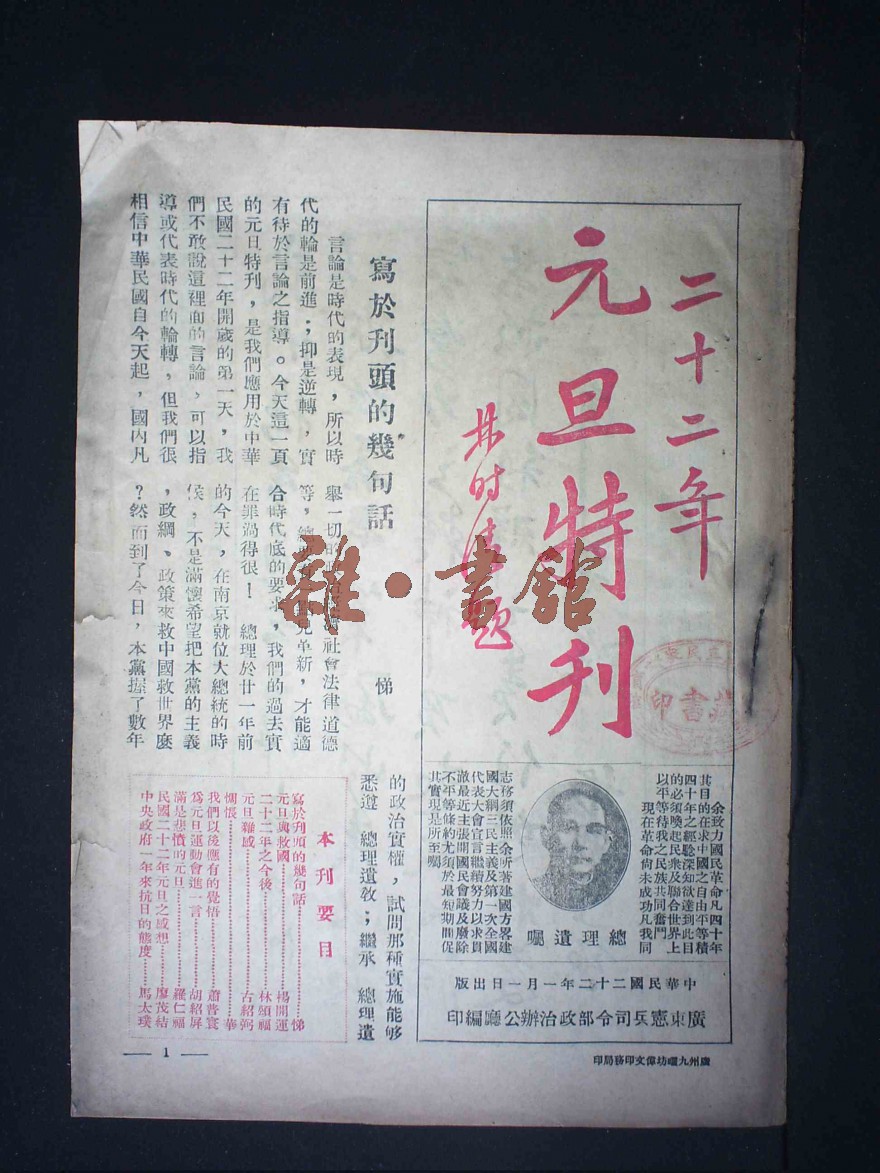 二十二年
元旦特刊
林时清題
總理遺囑
余致力國民革命凡四十年
其目的在求中國之自由平等積
四十年之經驗深知欲達到此目
的必須喚起民衆及聯合世界上
以平等待我之民族共同奮鬥
現在革命尚未成功凡我同
志務須依照余所著建國方畧建
國大綱三民主義及第一次全國
代表大會宣言繼續努力以求貫
澈最近主張開國民會議及廢除
不平等條約尤須於最短期間促
其實現是所至囑
中華民國二十二年一月一日出版
廣東憲兵司令部政治辦公廳編印
廣州九曜坊偉文印務局印
寫於刋頭的幾句話
悌
言論是時代的表現，所以時
代的輪是前進；抑是逆轉，實
有待於言論之指導。今天這一頁
的元旦特刊，是我們應用於中華
民國二十二年開歲的第一天，我
們不敢說這裡面的言論，可以指
導或代表時代的輪轉，但我們很
相信中華民國自今天起，國內凡
舉一切的政治經濟社會法律道德
等，革新，才能適
合時代底的要求，我們的過去實
在罪過得很！ 總理於廿一年前
的今天，在南京就位大總統的時
候，不是滿懷希望把本黨的主義
，政綱、政策來救中國救世界麽
？然而到了今日，本黨握了數年
的政治實權，試問那種實施能够
悉遵 總理遺敎；繼承 總理遺
本刊要目
寫於刋頭的幾句話 悌
元旦與救國 楊開運
二十二年之今後 林頌福
元旦雜感 古紹弼
惆悵 華
我們以後應有的覺悟 蕭普寰
爲元旦運動會進一言 胡紹屏
滿是悲憤的元旦 羅仁福
民國二十二年元旦之感想 廖茂結
中央政府一年來抗日的態度 馬太璞
— 1 —
藏書印
雜·書館